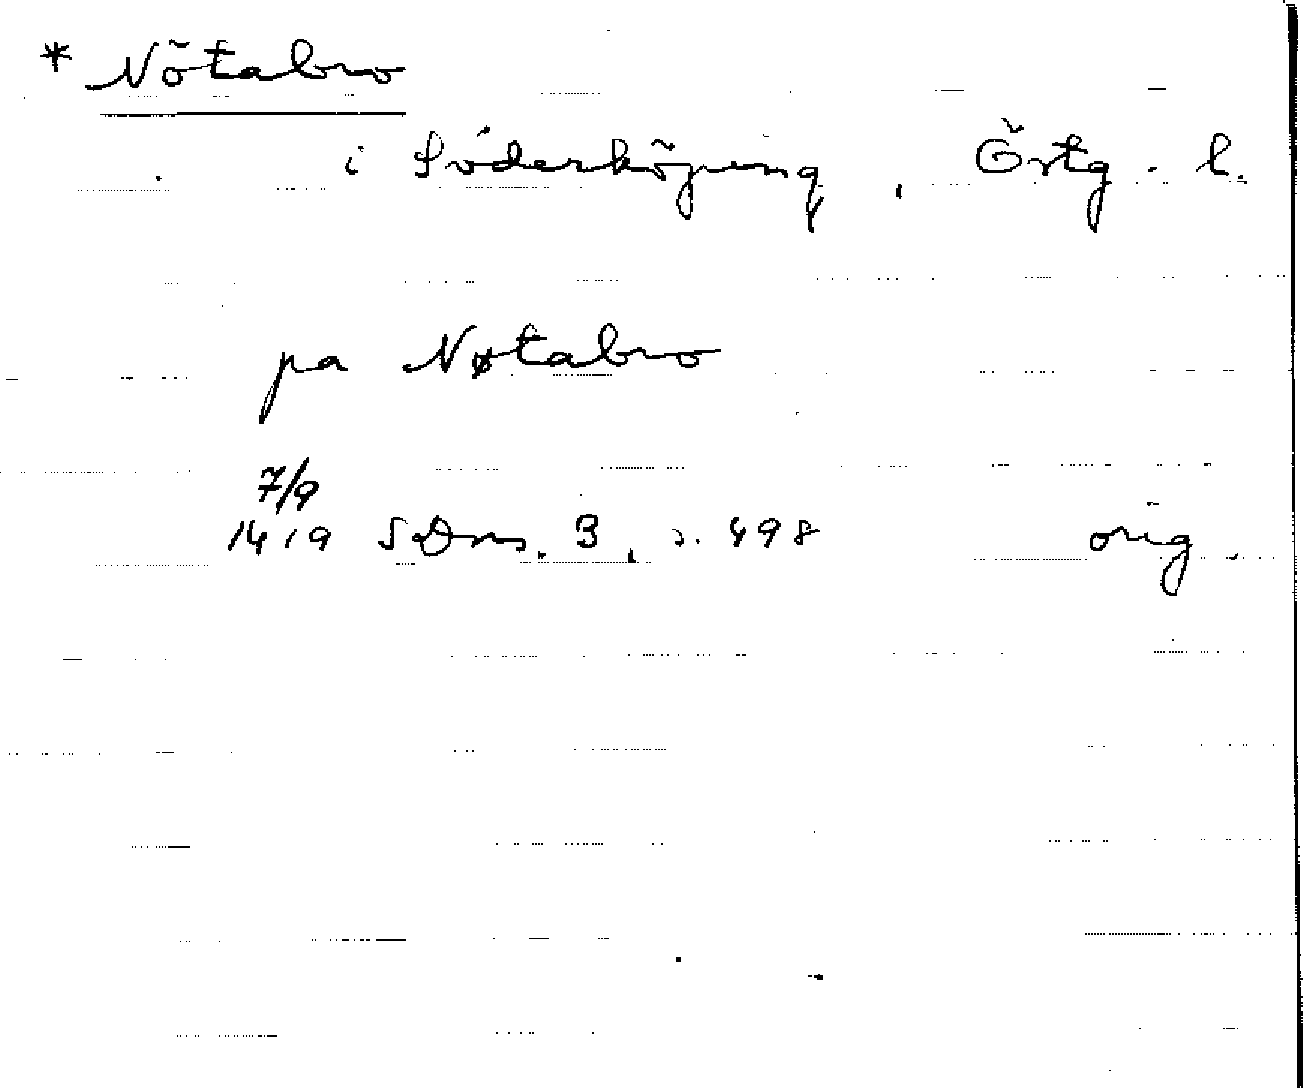 * Nötabro
i Söderköping, Östg. l.
pa Nøtabro
7/9
1419 SDns. 3, s. 498 orig.